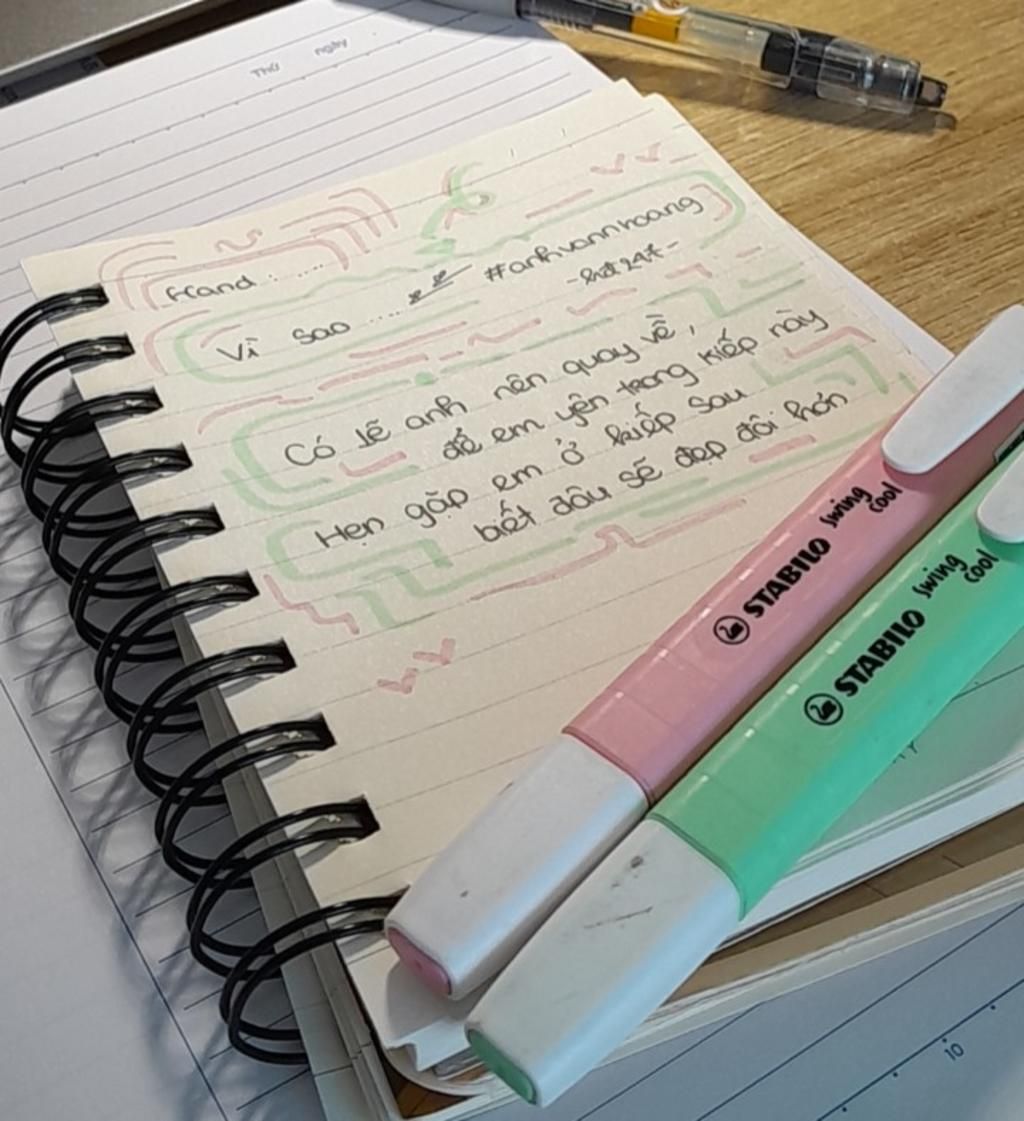 Thứ ngày
Hand : .....
Vì sao ..... #anhvannhoang
- hst 24t -
Có lẽ anh nên quay về,
để em yên trong kiếp này
Hẹn gặp em ở kiếp sau
biết đâu sẽ đẹp đôi hơn
STABILO swing cool
STABILO swing cool
10